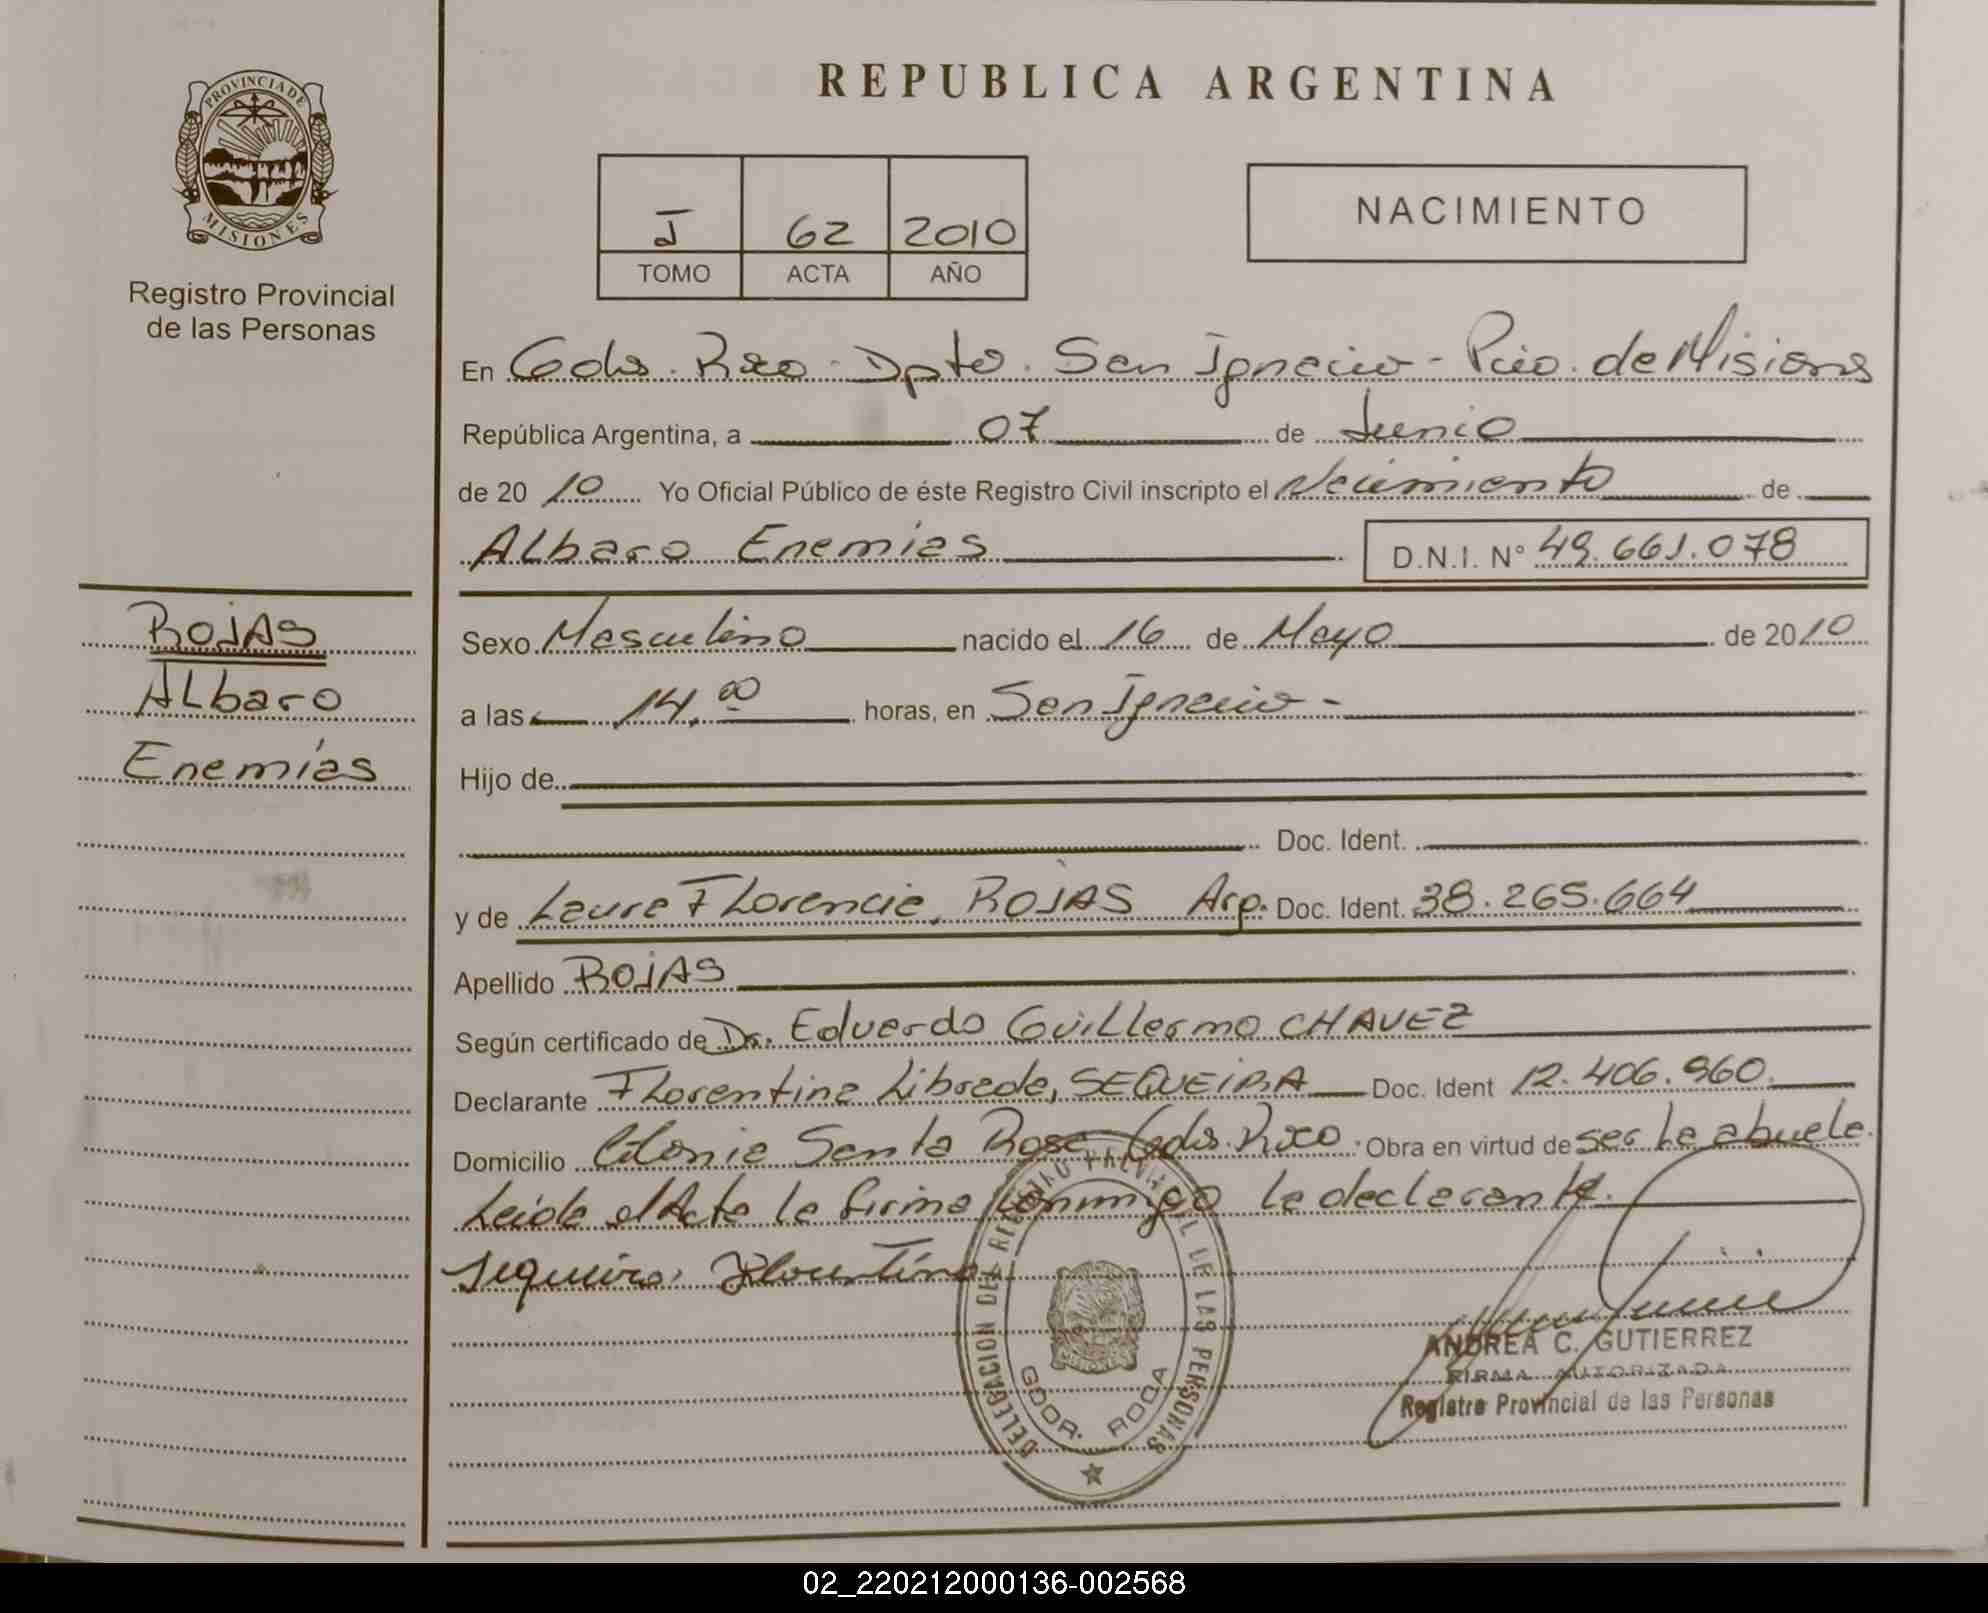 PROVINCIA DE
MISIONES
Registro Provincial
de las Personas
REPUBLICA ARGENTINA
I 62 2010
TOMO ACTA AÑO
NACIMIENTO
En Gdor. Roca - Dpto. San Ignacio - Pcia. de Misiones
República Argentina, a 07 de Junio
de 2010 Yo Oficial Público de éste Registro Civil inscripto el Nacimiento de
Albaro Enemías D.N.I. N° 49.661.078
ROJAS
Albaro
Enemías
Sexo Masculino nacido el 16 de Mayo de 2010
a las 14,00 horas, en San Ignacio -
Hijo de
Doc. Ident.
y de Laura Florencia, ROJAS Arg. Doc. Ident. 38.265.664
Apellido ROJAS
Según certificado de Dr. Eduardo Guillermo CHAVEZ
Declarante Florentina Librada, SEQUEIRA Doc. Ident 12.406.960
Domicilio Colonia Santa Rosa Gdor. Roca. Obra en virtud de ser la abuela.
Leída el Acta la firma conmigo la declarante.
Sequeira, Florentina
DELEGACION DEL REGISTRO PROVINCIAL DE LAS PERSONAS
GDOR. ROCA
ANDREA C. GUTIERREZ
FIRMA AUTORIZADA
Registro Provincial de las Personas
02_220212000136-002568